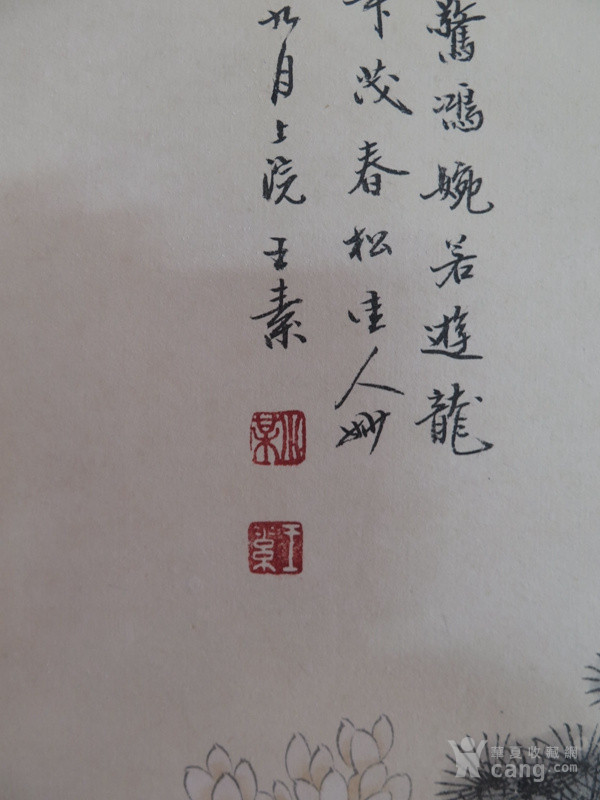 驚鴻婉若遊龍
茂春松佳人妙
九月上浣 王素
小某
王素
華夏收藏網
cang.com